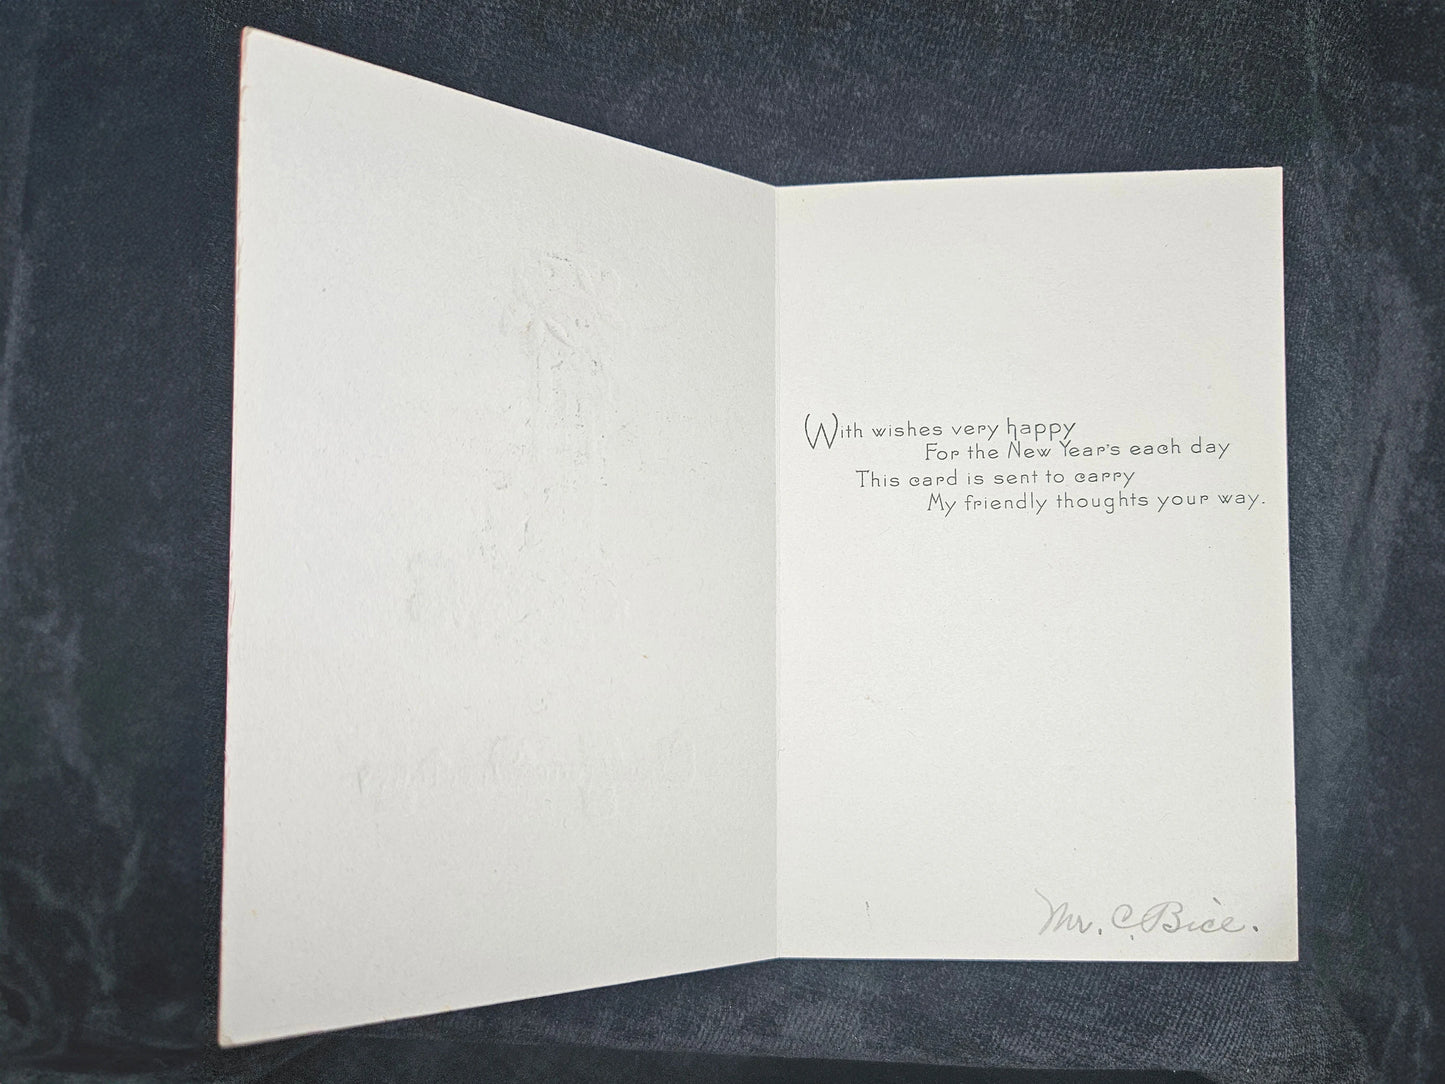 With wishes very happy
For the New Year's each day
This card is sent to carry
My friendly thoughts your way.
Mr. C. Bice.